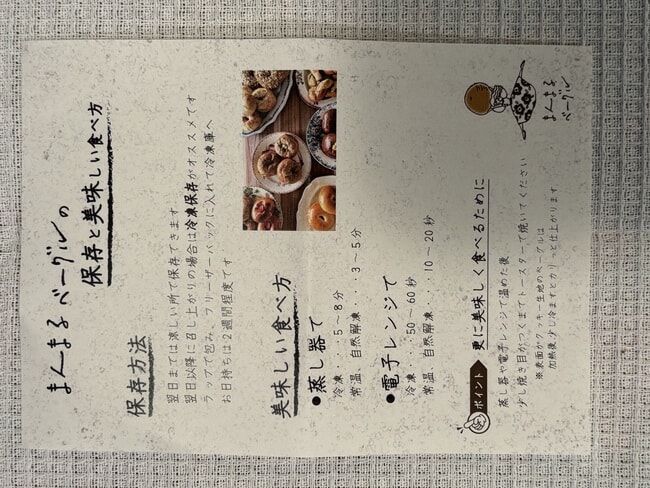 まんまる ベーグルの
保存と美味しい食べ方
保存方法
翌日までは涼しい所で保存できます
翌日以降に召し上がりの場合は冷凍保存がオススメです
ラップで包み、フリーザーバックに入れて冷凍庫へ
お日持ちは2週間程度です
美味しい食べ方
●蒸し器で
冷凍・・・5～8分
常温・自然解凍・・・3～5分
●電子レンジで
冷凍・・・50～60秒
常温・自然解凍・・・10～20秒
ポイント 更に美味しく食べるために
蒸し器や電子レンジで温めた後
少し焼き目がつくまでトースターで焼いてください
※表面がクッキー生地のベーグルは
加熱後少し冷ますとカリっと仕上がります
まんまる
ベーグル